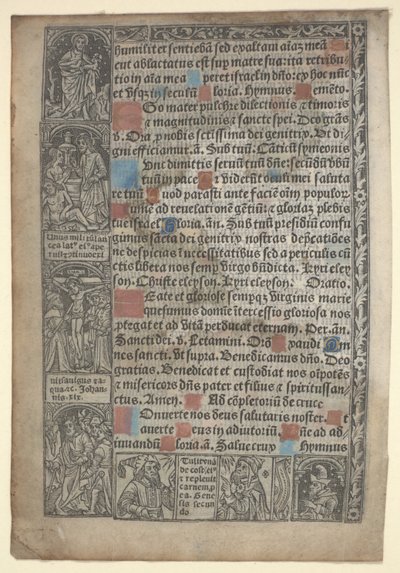 humiliter sentiebā sed exaltaui aīaȝ meā Si
cut ablactatus est sup matre sua: ita retribu
tio in aīa mea Speret israel in dn̄o: ex hoc nūc
et vsqȝ in seculū Gloria. Hymnus. Memēto.
EGo mater pulchre dilectionis & timoris
& magnitudinis & sancte spei. Deo gr̄as
v. Ora p nobis sctissima dei genitrix. Vt di
gni efficiamur. ā. Sub tuū. Cāticū symeonis
NVnc dimittis seruū tuū dn̄e: secūdū vbū
tuū in pace Quia viderūt oculi mei saluta
re tuū Quod parasti ante faciē oīm populor
Lumē ad reuelationē gētiū: & gloriaȝ plebis
tue israel Gloria. ān. Sub tuū presidiū confu
gimus sācta dei genitrix nostras depcationes
ne despicias ī necessitatibus sed a periculis cū
ctis libera nos semp virgo bn̄dicta. Kyri eley
son. Christe eleyson. Kyri eleyson. Oratio.
BEate et gloriose sempqȝ virginis marie
quesumus domine ītercessio gloriosa nos
ptegat et ad vitā perducat eternam. Per. ān.
Sancti dei. v. Letamini. Ds Exaudi Om
nes sancti. Vt supra. Benedicamus dn̄o. Deo
gratias. Benedicat et custodiat nos oīpotēs
& misericors dn̄s pater et filius & spiritussan-
ctus. Amen. Ad cōpletoriū de cruce
COnuerte nos deus salutaris noster. Et
auerte Deus in adiutoriū. Dn̄e ad ad-
iuuandū Gloria. ā. Salue crux Hymnus
Vnus militū lan
cea lat' ei' ape
ruit
et
aqua &c. Johan-
nis. xix.
Tulit vnā
de costis ei'
et repleuit
carnem p
ea. Gene
sis secun
do